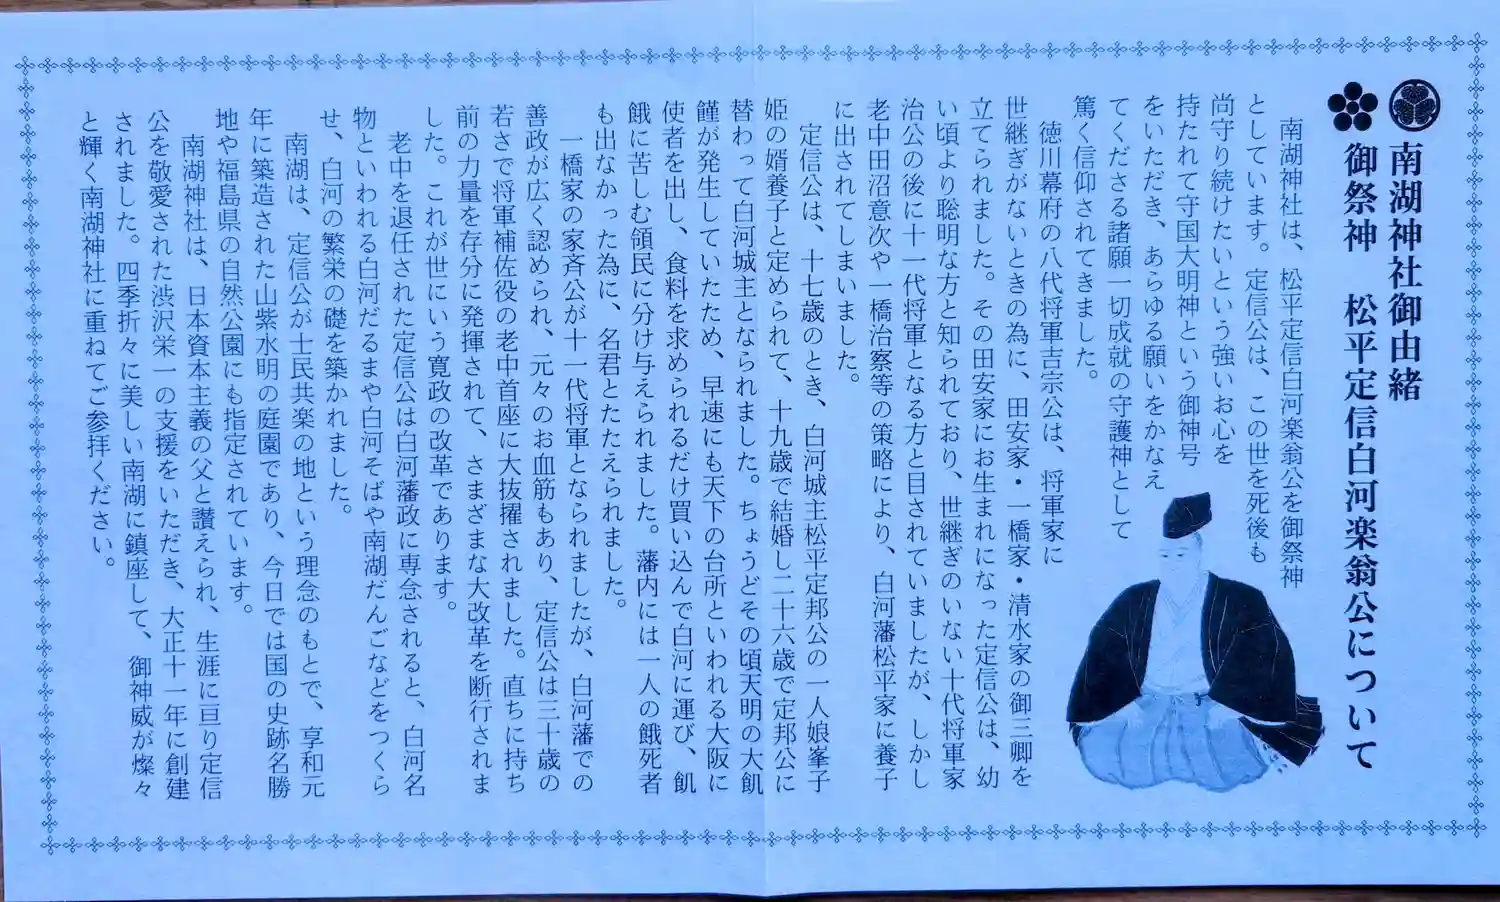 南湖神社御由緒
御祭神　松平定信白河楽翁公について
南湖神社は、松平定信白河楽翁公を御祭神
としています。定信公は、この世を死後も
尚守り続けたいという強いお心を
持たれて守国大明神という御神号
をいただき、あらゆる願いをかなえ
てくださる諸願一切成就の守護神として
篤く信仰されてきました。
徳川幕府の八代将軍吉宗公は、将軍家に
世継ぎがないときの為に、田安家・一橋家・清水家の御三卿を
立てられました。その田安家にお生まれになった定信公は、幼
い頃より聡明な方と知られており、世継ぎのいない十代将軍家
治公の後に十一代将軍となる方と目されていましたが、しかし
老中田沼意次や一橋治察等の策略により、白河藩松平家に養子
に出されてしまいました。
定信公は、十七歳のとき、白河城主松平定邦公の一人娘峯子
姫の婿養子と定められて、十九歳で結婚し二十六歳で定邦公に
替わって白河城主となられました。ちょうどその頃天明の大飢
饉が発生していたため、早速にも天下の台所といわれる大阪に
使者を出し、食料を求められるだけ買い込んで白河に運び、飢
餓に苦しむ領民に分け与えられました。藩内には一人の餓死者
も出なかった為に、名君とたたえられました。
一橋家の家斉公が十一代将軍となられましたが、白河藩での
善政が広く認められ、元々のお血筋もあり、定信公は三十歳の
若さで将軍補佐役の老中首座に大抜擢されました。直ちに持ち
前の力量を存分に発揮されて、さまざまな大改革を断行されま
した。これが世にいう寛政の改革であります。
老中を退任された定信公は白河藩政に専念されると、白河名
物といわれる白河だるまや白河そばや南湖だんごなどをつくら
せ、白河の繁栄の礎を築かれました。
南湖は、定信公が士民共楽の地という理念のもとで、享和元
年に築造された山紫水明の庭園であり、今日では国の史跡名勝
地や福島県の自然公園にも指定されています。
南湖神社は、日本資本主義の父と讃えられ、生涯に亘り定信
公を敬愛された渋沢栄一の支援をいただき、大正十一年に創建
されました。四季折々に美しい南湖に鎮座して、御神威が燦々
と輝く南湖神社に重ねてご参拝ください。